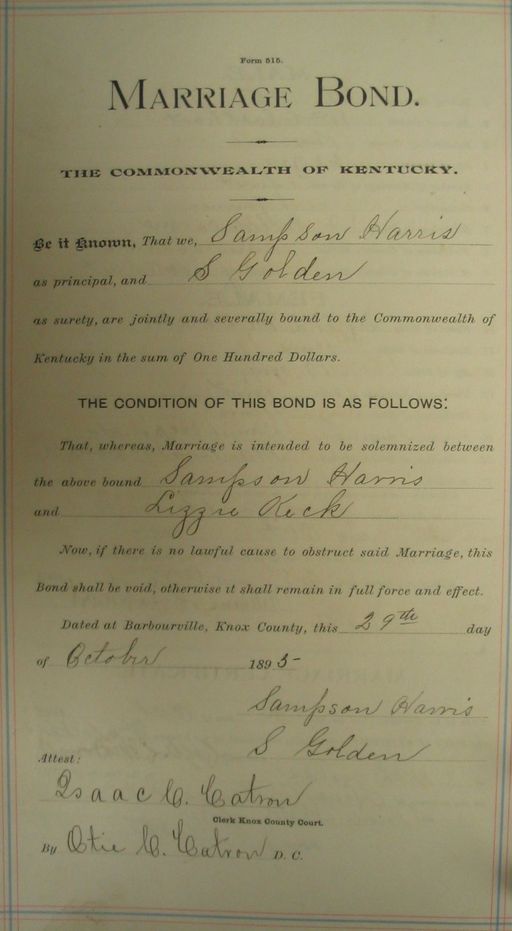 Form 515.
MARRIAGE BOND.
THE COMMONWEALTH OF KENTUCKY.
Be it Known, That we, Sampson Harris
as principal, and S Golden
as surety, are jointly and severally bound to the Commonwealth of
Kentucky in the sum of One Hundred Dollars.
THE CONDITION OF THIS BOND IS AS FOLLOWS:
That, whereas, Marriage is intended to be solemnized between
the above bound Sampson Harris
and Lizzie Keck
Now, if there is no lawful cause to obstruct said Marriage, this
Bond shall be void, otherwise it shall remain in full force and effect.
Dated at Barbourville, Knox County, this 29th day
of October 1895-
Sampson Harris
S Golden
Attest:
Isaac C. Catron
Clerk Knox County Court.
By Otie C. Catron D. C.